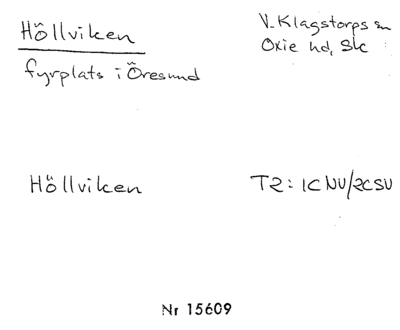 Höllviken
V. Klagstorps sn
Oxie hd, Sk
fyrplats i Öresund
Höllviken
T2: 1C NV/2C SV
Nr 15609